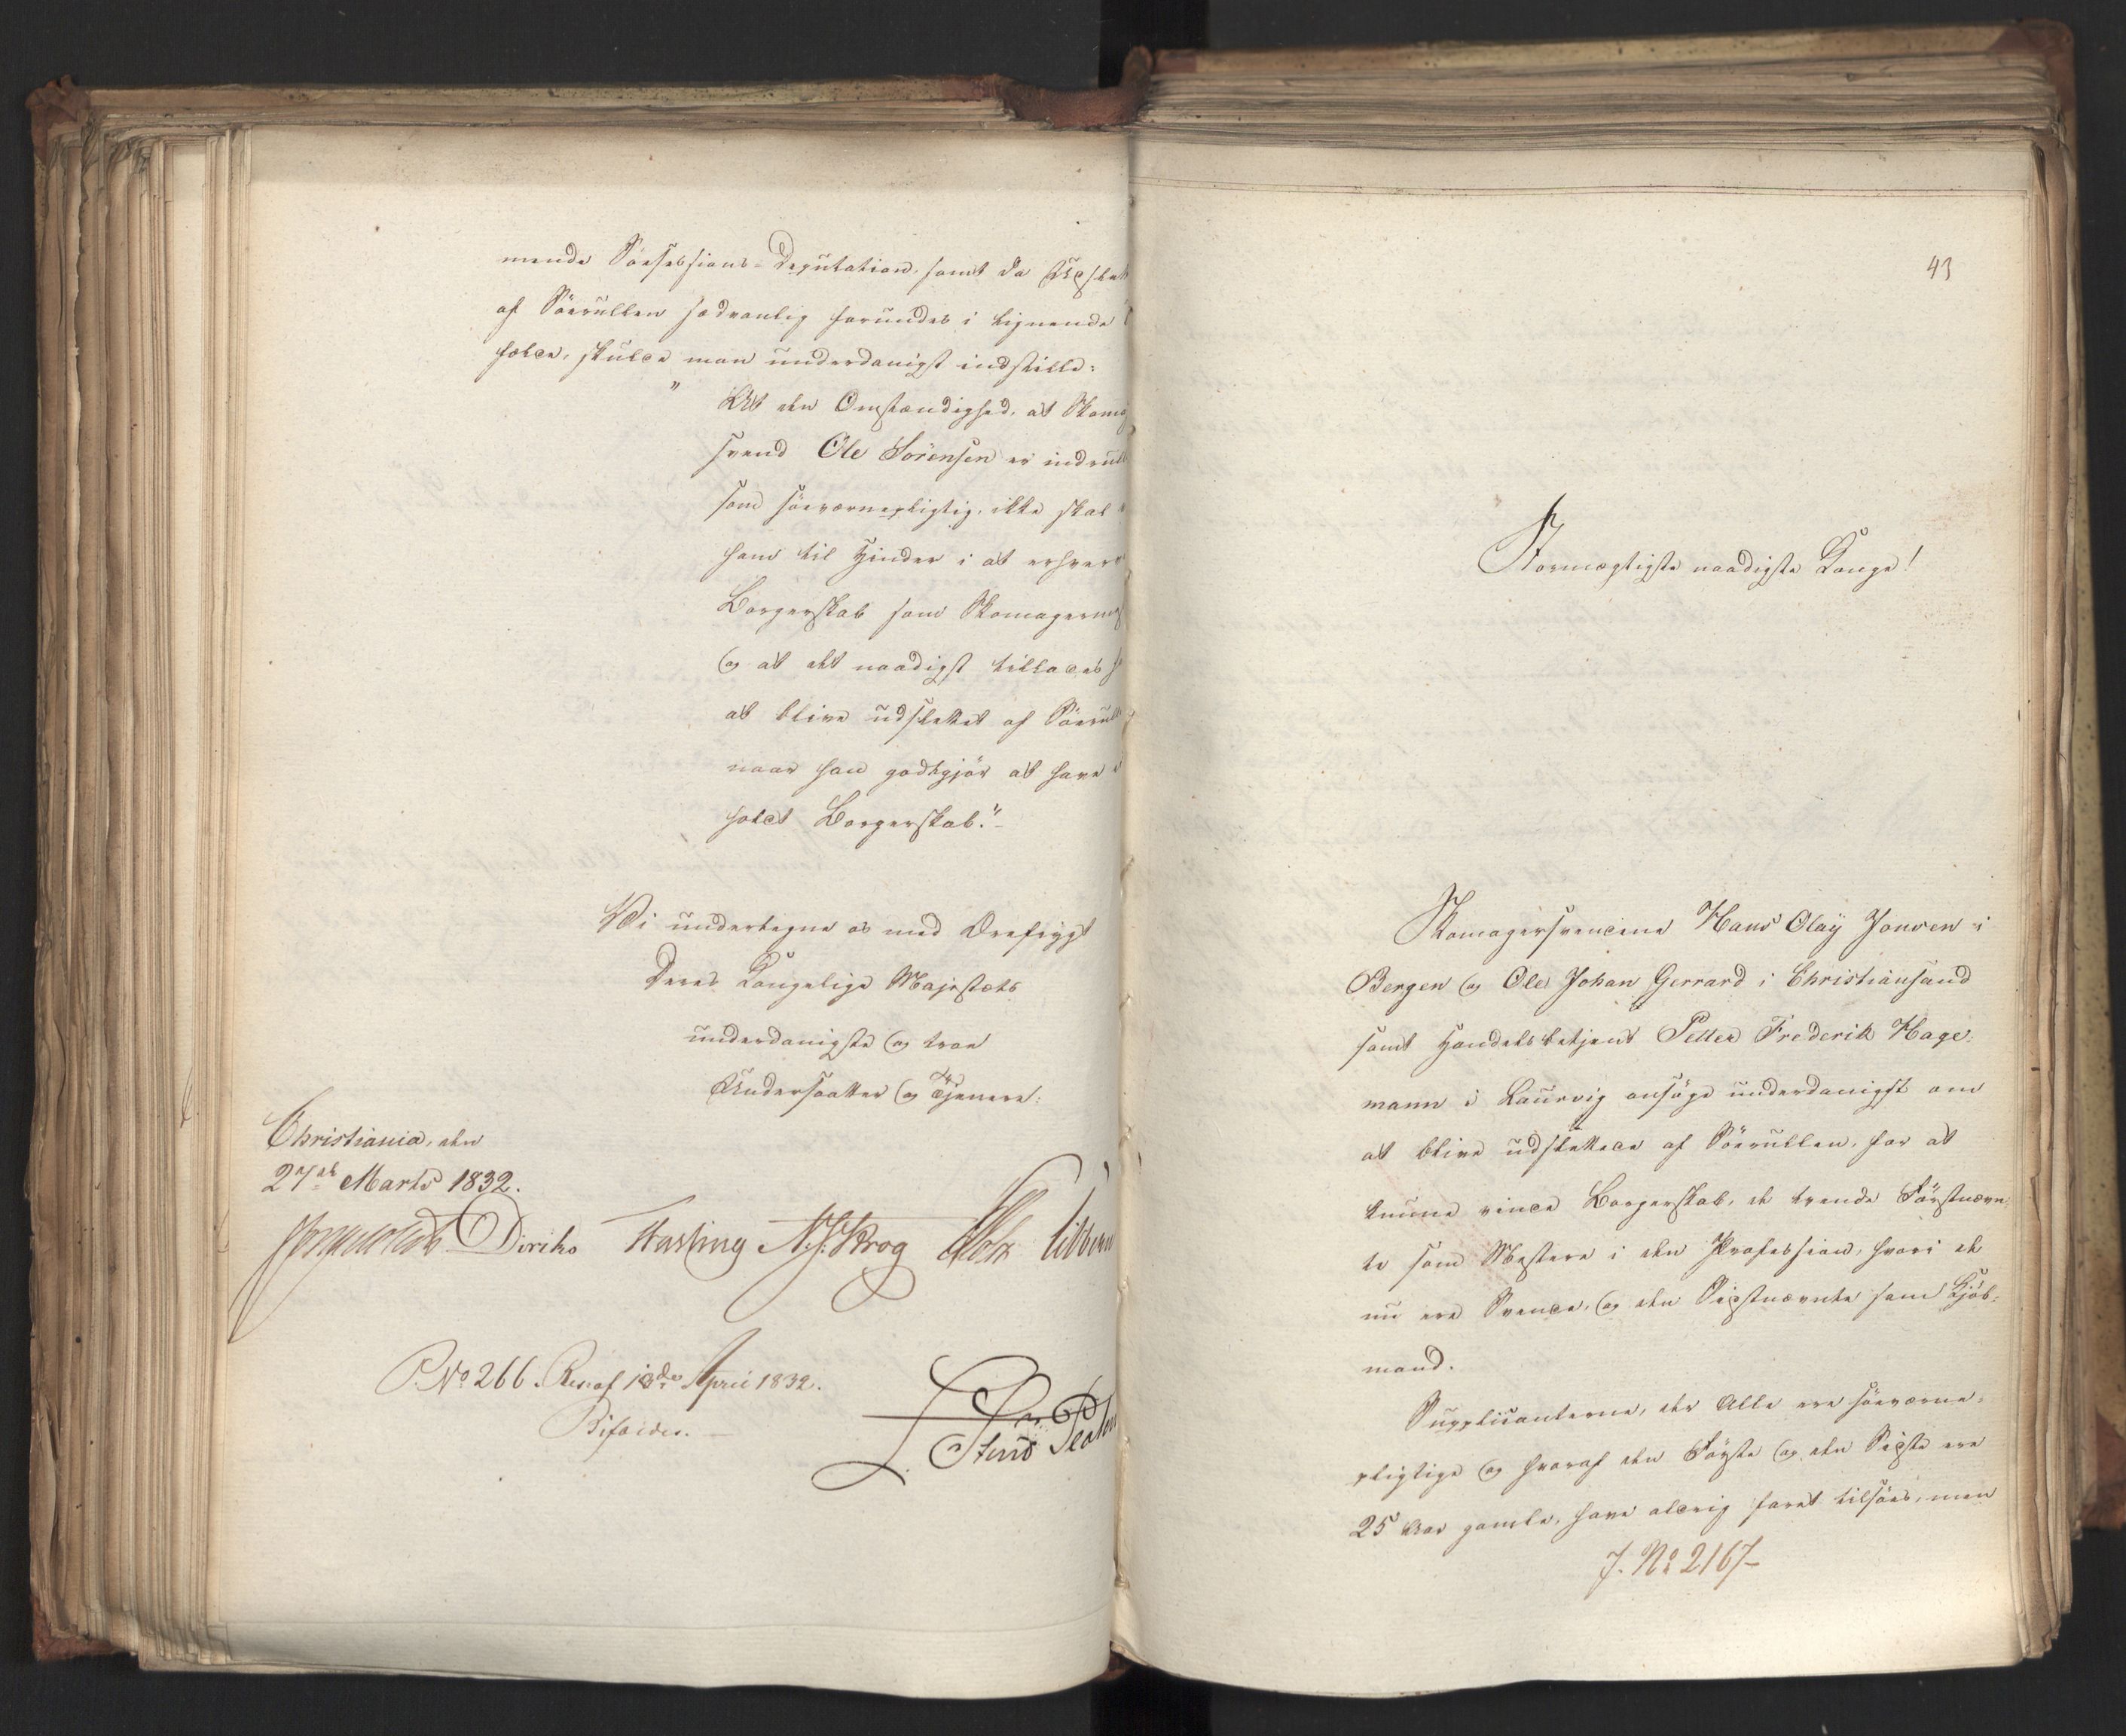 mende Söesessions-Deputation, samt da Udslet
af Söerullen sædvanlig forundes i lignende
fælde, skulde man underdanigst indstille:
" At den Omstændighed, at Skomag
svend Ole Sörensen er indrull
som söeværnepligtig, ikke skal
ham til Hinder i at erhverv
Borgerskab som Skomagermes
og at det naadigst tillades h
at blive udslettet af Söerull
naar han godtgjör at have
holdt Borgerskab."
Vi undertegne os med Ærefrygt
Deres Kongelige Majestæts
underdanigste og troe
Undersaatter og Tjenere:
Christiania, den
27de Marts 1832.
Diriks Fasting N. J. Krog Holst Vibe
P. No 266. Res. af 13de April 1832.
Bifaldes.
43
Stormægtigste naadigste Konge!
Skomagersvendene Hans Olay Jonsen i
Bergen og Ole Johan Gerrard i Christiansand
samt Handelsbetjent Petter Frederik Hage-
mann i Laurvig ansöge underdanigst om
at blive udslettede af Söerullen, for at
kunne vinde Borgerskab, de tvende Förstnævn-
te som Mestere i den Profession, hvori de
nu ere Svende, og den Sidstnævnte som Kjöb-
mand.
Supplicanterne, der Alle ere söeværne-
pligtige og hvoraf den Förste og den Sidste ere
25 Aar gamle, have aldrig faret tilsöes, men
J. No 2167-